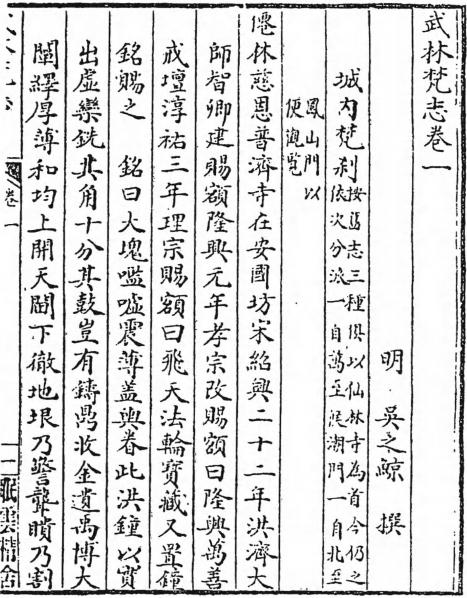 武林梵志卷一
明 吳之鯨 撰
城內梵刹
按舊志三種俱以仙林寺為首今仍之
依次分派一自萬至候潮門一自北至
鳳山門以
便觀覽
僊林慈恩普濟寺在安國坊宋紹興二十二年洪濟大
師智卿建賜額隆興元年孝宗改賜額曰隆興萬善
戒壇淳祐三年理宗賜額曰飛天法輪寶藏又置鐘
銘賜之 銘曰大塊噫噓震薄蓋輿眷此洪鐘以實
出虛欒銑其角十分其鼓豈有鑄收金遺禹博大
閩繹厚薄和均上開天閶下徹地垠乃警聾瞶乃割
卷一
一
眠雲精舍